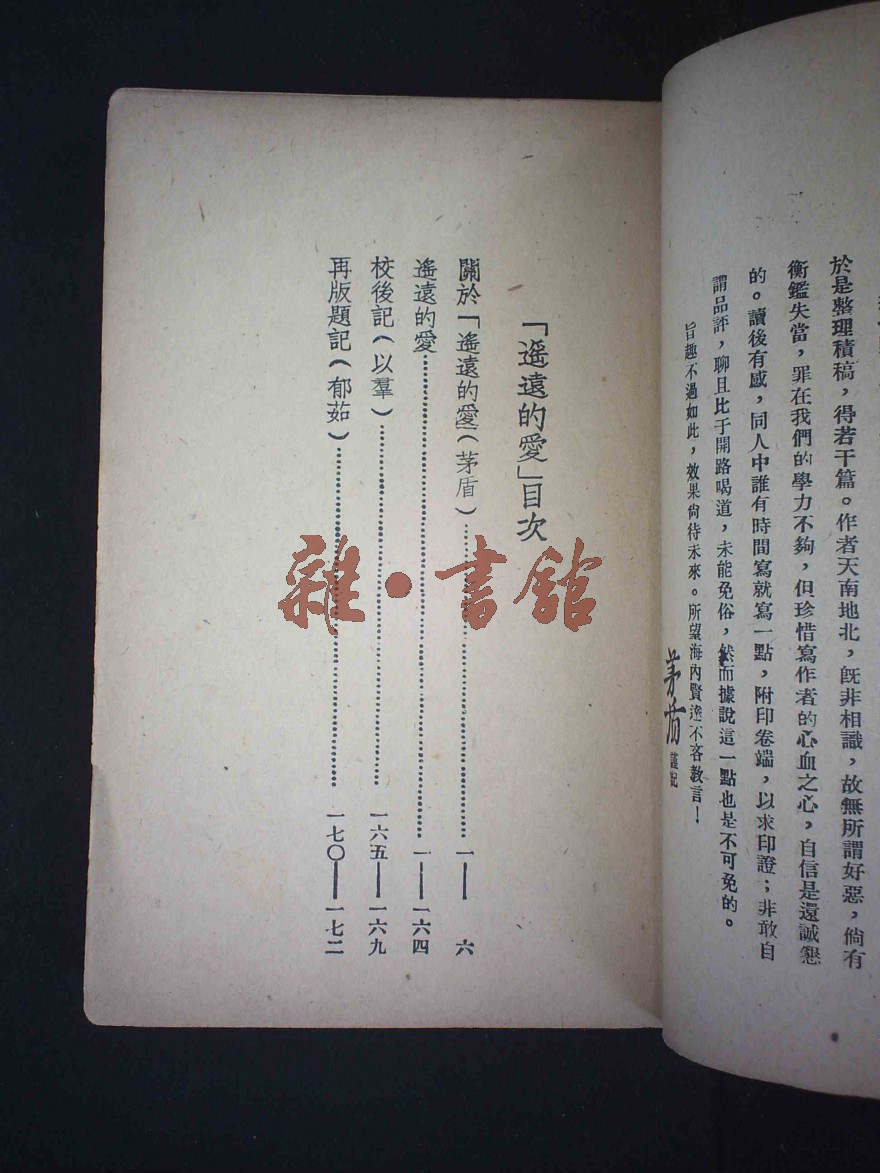 於是整理積稿，得若干篇。作者天南地北，既非相識，故無所謂好惡，倘有
衡鑑失當，罪在我們的學力不夠，但珍惜寫作者的心血之心，自信是還誠懇
的。讀後有感，同人中誰有時間寫就寫一點，附印卷端，以求印證；非敢自
謂品評，聊且比于開路喝道，未能免俗，然而據說這一點也是不可免的。
旨趣不過如此，效果尙待未來。所望海內賢達不吝教言！
茅盾謹記
「遙遠的愛」目次
關於「遙遠的愛」（茅盾）……一——六
遙遠的愛……一——一六四
校後記（以羣）……一六五——一六九
再版題記（郁茹）……一七〇——一七二
雜·書館